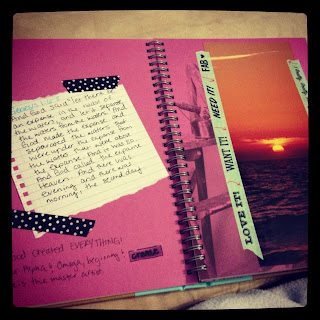 Genesis 1:6-8
And God said "let there be
an expanse in the midst of
the waters, and let it separate
the waters from the waters. And
God made the expanse and
separated the waters that
were under the expanse from
the waters that were above
the expanse. And it was so.
And God called the expanse
Heaven. And there was
evening and there was
morning, the second day
God created EVERYTHING!
Alpha & Omega, beginning &
is the master artist.
LOVE IT!
WANT IT!
NEED IT!
FAB